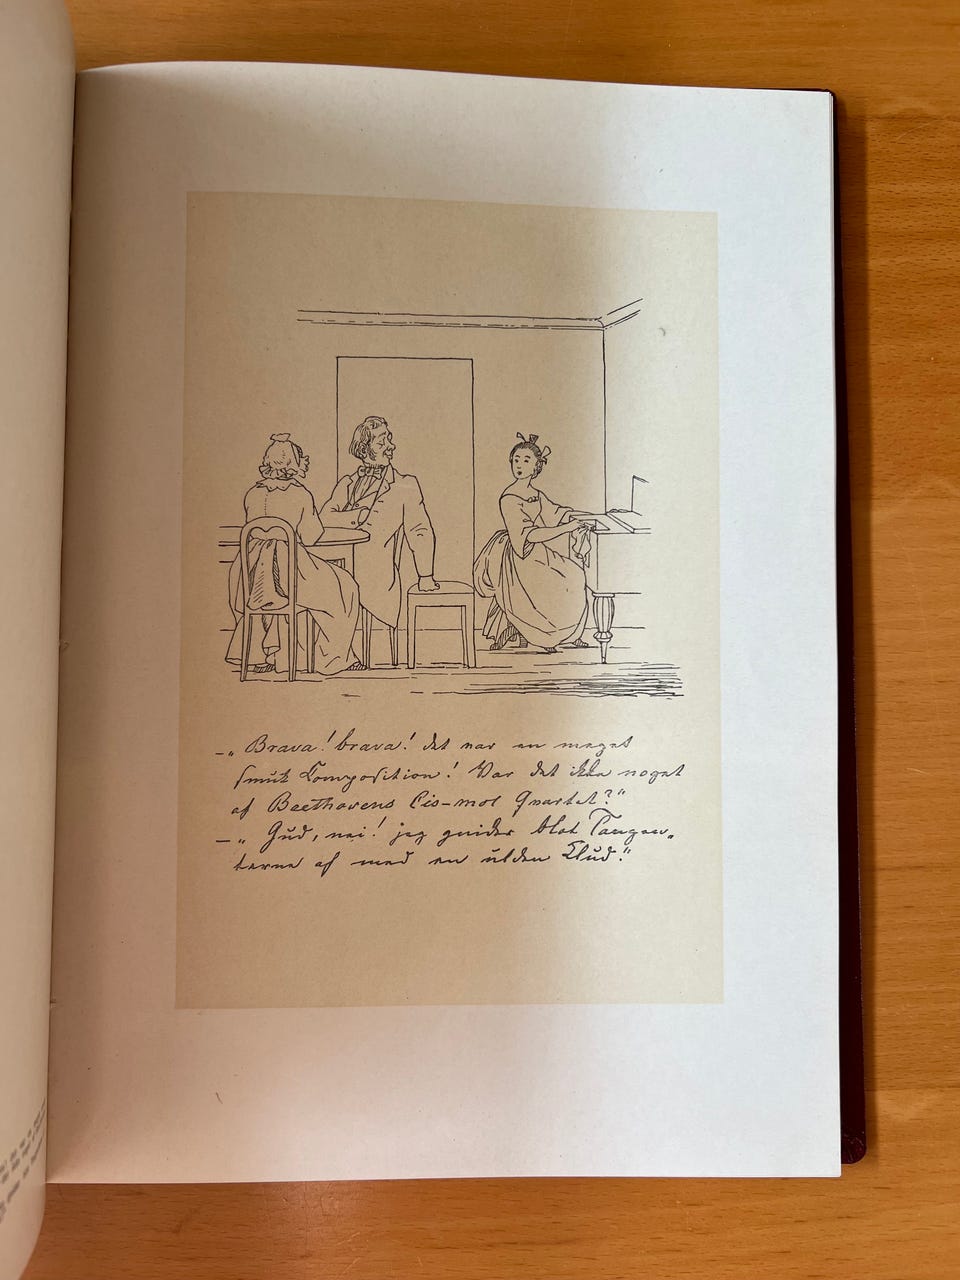 –„Brava! brava! det var en meget
smuk Composition! Var det ikke noget
af Beethovens Cis-mol Qvartet?“
–„Gud, nei! jeg gnider blot Tangen-
terne af med en ulden Klud.“